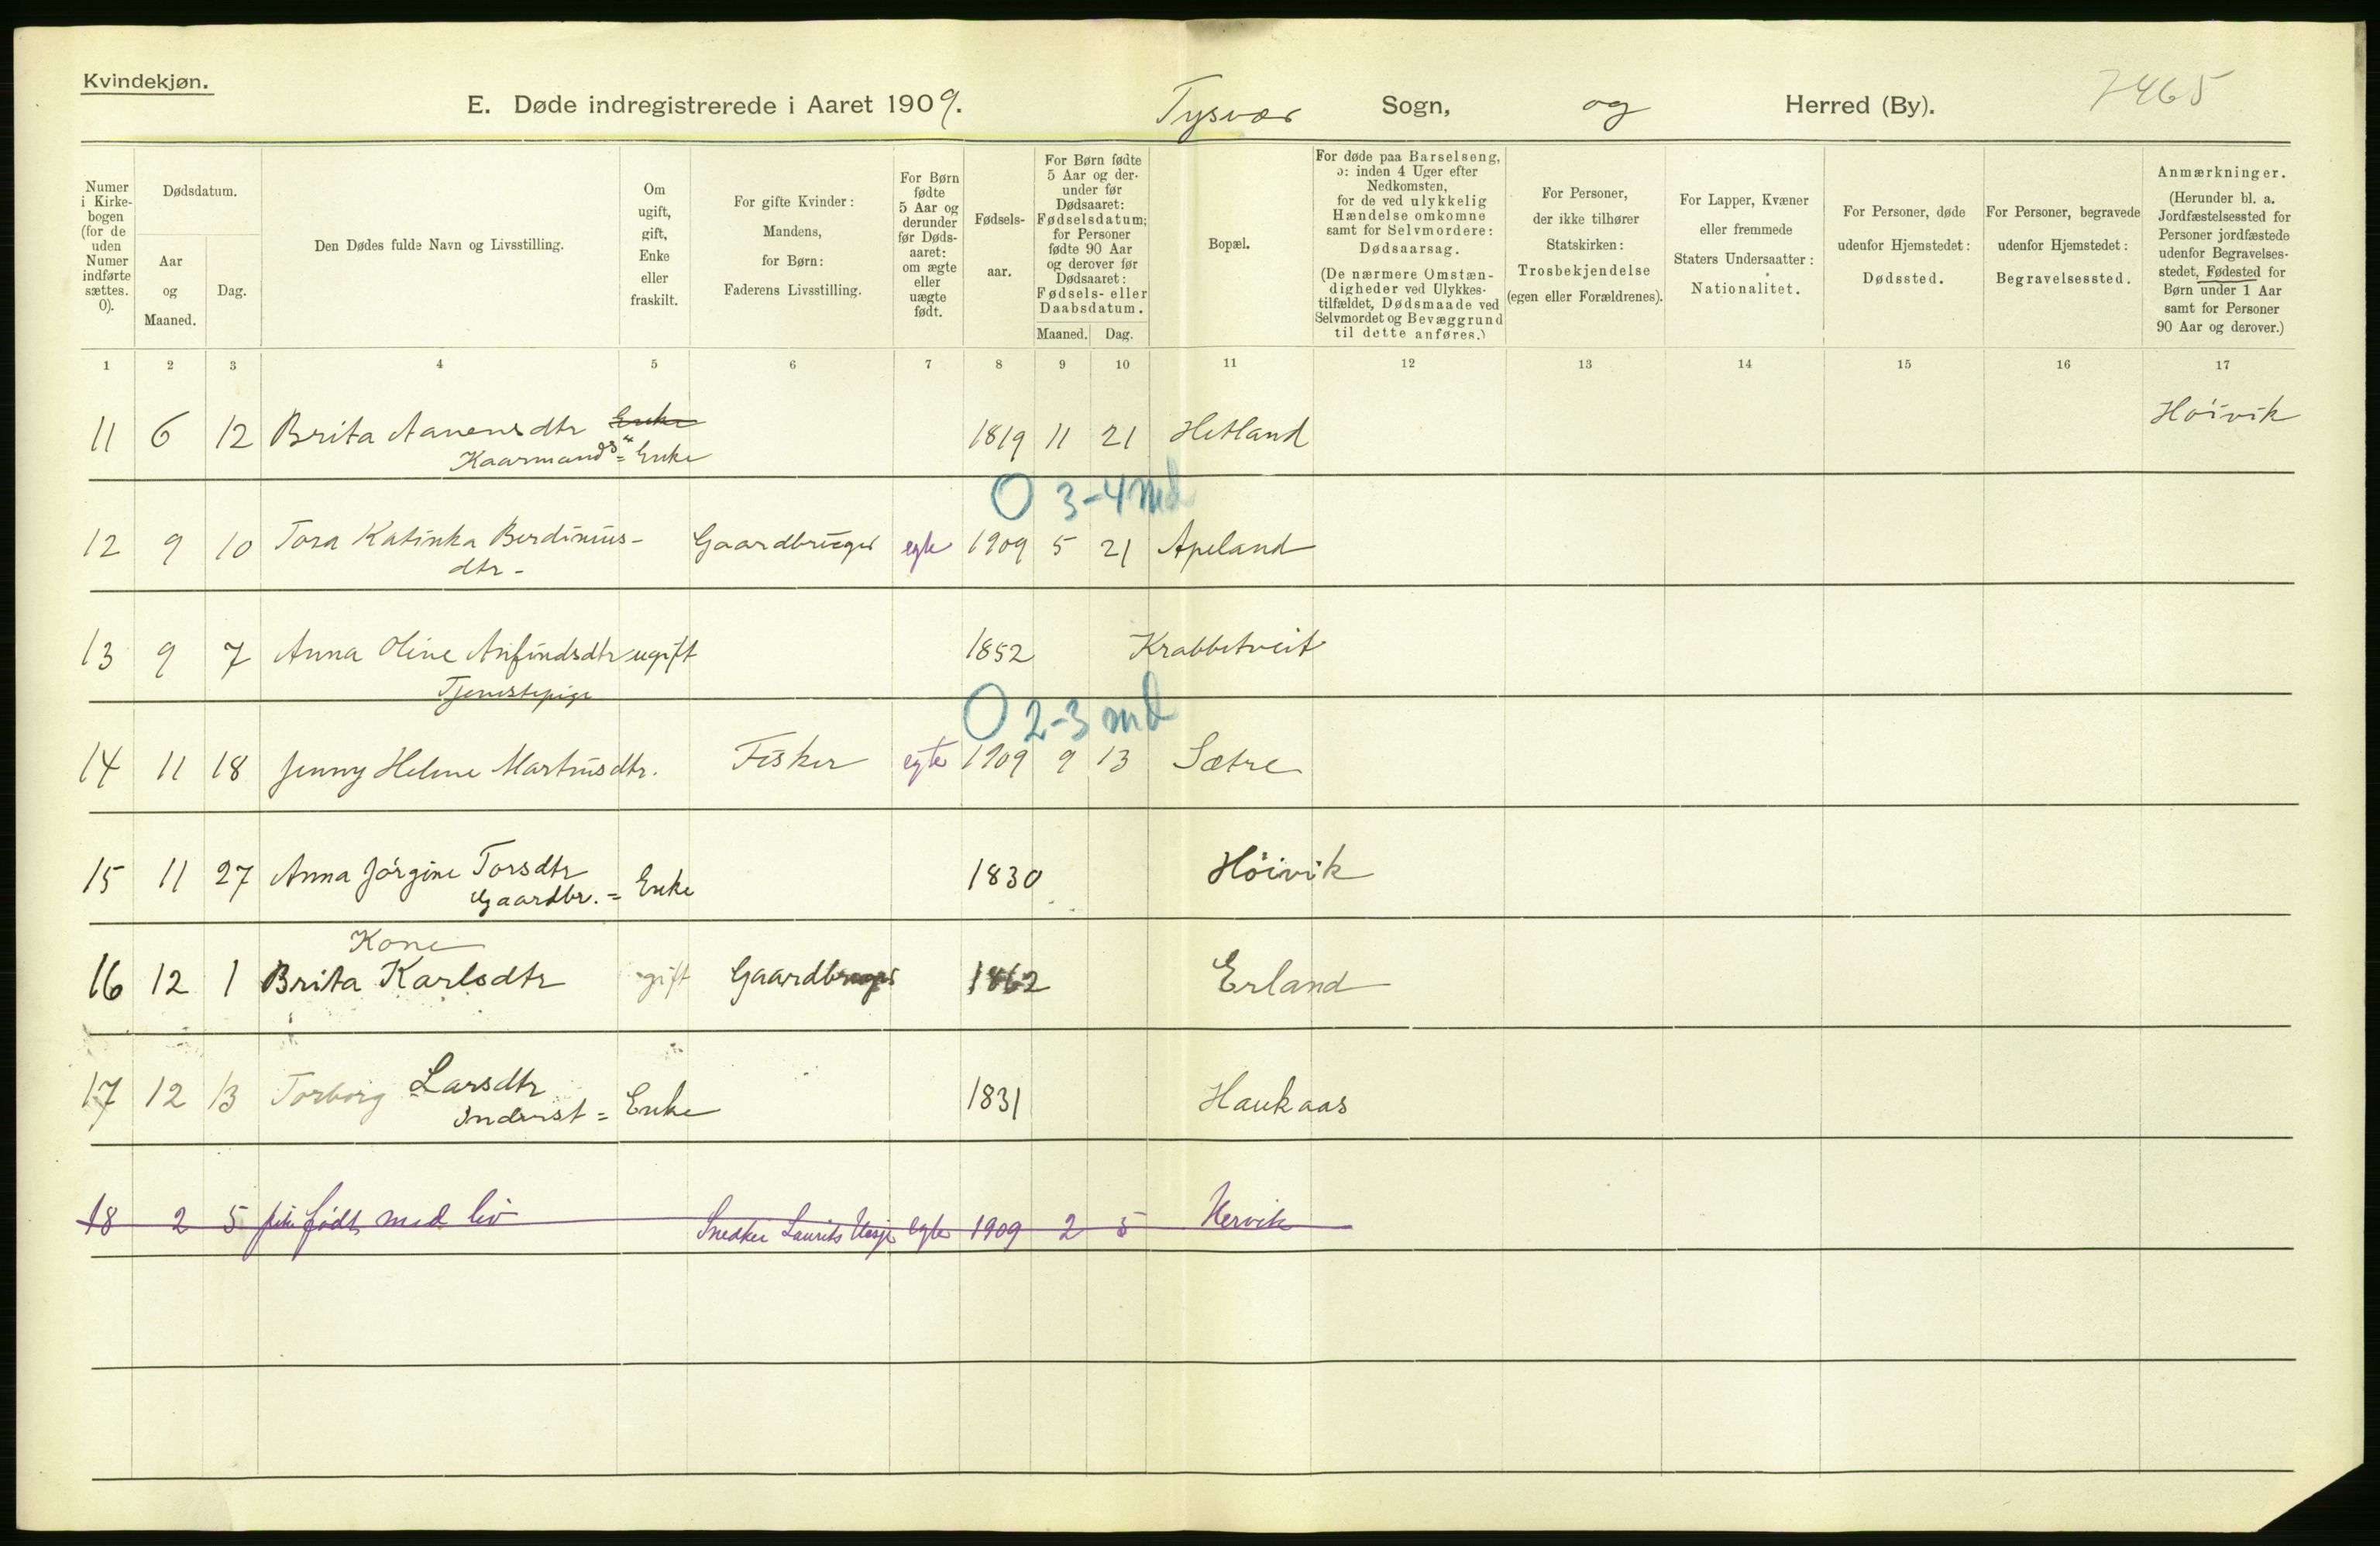 Kvindekjøn.
E. Døde indregistrerede i Aaret 1909. Tysvær Sogn, og Herred (By). 7465
Numer i Kirke-bogen (for de uden Numer indførte sættes. 0).
Dødsdatum.
Aar og Maaned.
Dag.
Den Dødes fulde Navn og Livsstilling.
Om ugift, gift, Enke eller fraskilt.
For gifte Kvinder: Mandens, for Børn: Faderens Livsstilling.
For Børn fødte 5 Aar og derunder før Døds-aaret: om ægte eller uægte født.
Fødsels-aar.
For Børn fødte 5 Aar og der-under før Dødsaaret: Fødselsdatum; for Personer fødte 90 Aar og derover før Dødsaaret: Fødsels- eller Daabsdatum.
Maaned. Dag.
Bopæl.
For døde paa Barselseng, ɔ: inden 4 Uger efter Nedkomsten, for de ved ulykkelig Hændelse omkomne samt for Selvmordere: Dødsaarsag.
(De nærmere Omstæn-digheder ved Ulykkes-tilfældet, Dødsmaade ved Selvmordet og Bevæggrund til dette anføres.)
For Personer, der ikke tilhører Statskirken: Trosbekjendelse (egen eller Forældrenes).
For Lapper, Kvæner eller fremmede Staters Undersaatter: Nationalitet.
For Personer, døde udenfor Hjemstedet: Dødssted.
For Personer, begravede udenfor Hjemstedet: Begravelsessted.
Anmærkninger.
(Herunder bl. a. Jordfæstelsessted for Personer jordfæstede udenfor Begravelses-stedet, Fødested for Børn under 1 Aar samt for Personer 90 Aar og derover.)
1 2 3 4 5 6 7 8 9 10 11 12 13 14 15 16 17
11 6 12 Brita Aanensdtr Enke 1819 11 21 Hetland Høivik
Kaarmands= Enke
O 3-4 md
12 9 10 Tora Katinka Berdinius- Gaardbruger egte 1909 5 21 Apeland
dtr-
13 9 7 Anna Oline Anfindsdtr ugift 1852 Krabbetveit
Tjenestepige
O 2-3 md
14 11 18 Jenny Helene Martinsdtr. Fisker egte 1909 9 13 Sætre
15 11 27 Anna Jørgine Torsdtr 1830 Høivik
Gaardbr. = Enke
Kone
16 12 1 Brita Karlsdtr gift Gaardbruger 1862 Erland
17 12 13 Torborg Larsdtr 1831 Haukaas
Inderst = Enke
18 2 5 født med liv Snedker Laurits egte 1909 2 5 Hervik